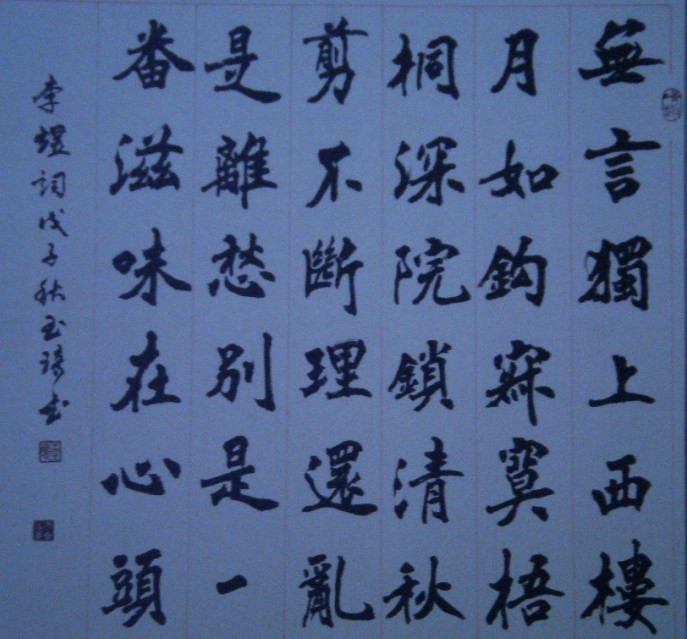 無言獨上西樓
月如鈎寂寞梧
桐深院鎖清秋
剪不斷理還亂
是離愁別是一
番滋味在心頭
李煜詞戊子秋玉琦书